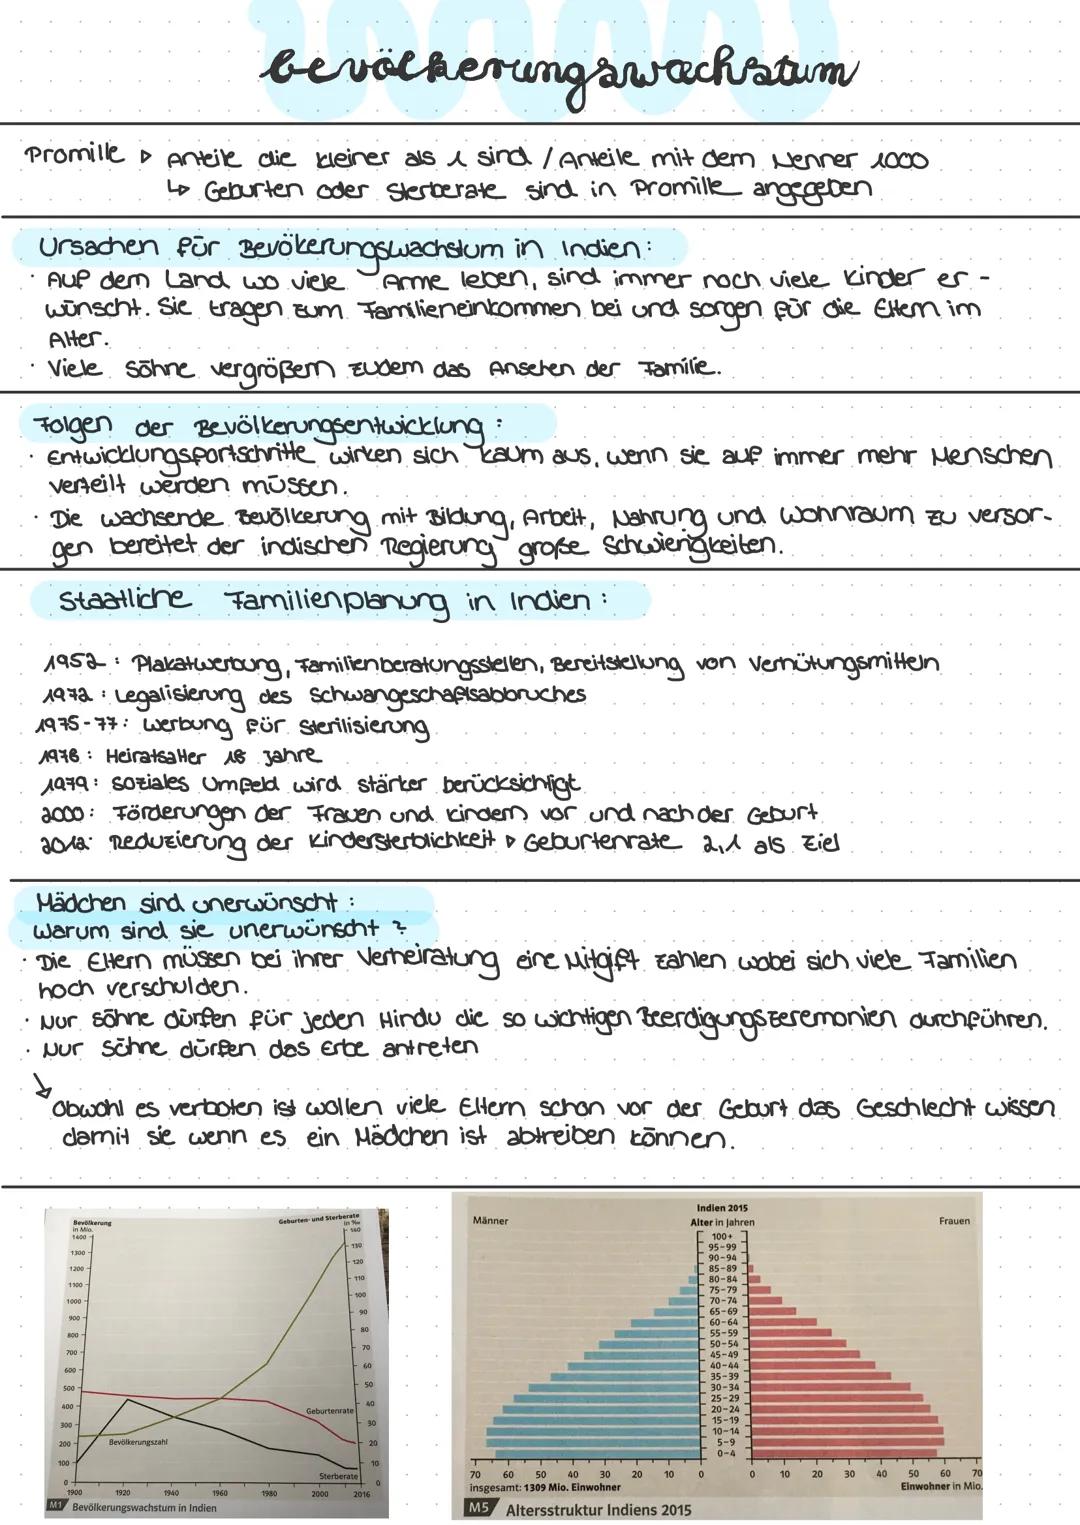 bevölkerungswachstum
Promille ▷ Anteile die kleiner als 1 sind / Anteile mit dem Nenner 1000
↳ Geburten oder Sterberate sind in Promille angegeben
Ursachen für Bevökerungswachstum in Indien:
· Auf dem Land wo viele Arme leben, sind immer noch viele Kinder er-
wünscht. Sie tragen zum Familieneinkommen bei und sorgen für die Eltern im
Alter.
· Viele Söhne vergrößern zudem das Ansehen der Familie.
Folgen der Bevölkerungsentwicklung:
· Entwicklungsfortschritte wirken sich kaum aus, wenn sie auf immer mehr Menschen
verteilt werden müssen.
· Die wachsende Bevölkerung mit Bildung, Arbeit, Nahrung und Wohnraum zu versor-
gen bereitet der indischen Regierung große Schwierigkeiten.
Staatliche Familienplanung in Indien:
1952: Plakatwerbung, Familienberatungsstellen, Bereitstellung von Verhütungsmitteln
1972: Legalisierung des Schwangeschaftsabbruches
1975-77: Werbung für Sterilisierung
1978: Heiratsalter 18 Jahre
1979: Soziales Umfeld wird stärker berücksichtigt
2000: Förderungen der Frauen und Kindern vor und nach der Geburt
2012: Reduzierung der Kindersterblichkeit ▷ Geburtenrate 2,1 als Ziel
Mädchen sind unerwünscht:
Warum sind sie unerwünscht?
· Die Eltern müssen bei ihrer Verheiratung eine Mitgift zahlen wobei sich viele Familien
hoch verschulden.
· Nur Söhne dürfen für jeden Hindu die so wichtigen Beerdigungszeremonien durchführen.
· Nur Söhne dürfen das Erbe antreten
↳ Obwohl es verboten ist wollen viele Eltern schon vor der Geburt das Geschlecht wissen
damit sie wenn es ein Mädchen ist abtreiben können.
Bevölkerung
in Mio.
Geburten- und Sterberate
in ‰
1400
1300
1200
1100
1000
900
800
700
600
500
400
300
200
100
0
140
130
120
110
100
90
80
70
60
50
40
30
20
10
0
Geburtenrate
Bevölkerungszahl
Sterberate
1900 1920 1940 1960 1980 2000 2016
M1 Bevölkerungswachstum in Indien
Indien 2015
Männer Alter in Jahren Frauen
100+
95-99
90-94
85-89
80-84
75-79
70-74
65-69
60-64
55-59
50-54
45-49
40-44
35-39
30-34
25-29
20-24
15-19
10-14
5-9
0-4
70 60 50 40 30 20 10 0 0 10 20 30 40 50 60 70
insgesamt: 1309 Mio. Einwohner Einwohner in Mio.
M5 Altersstruktur Indiens 2015